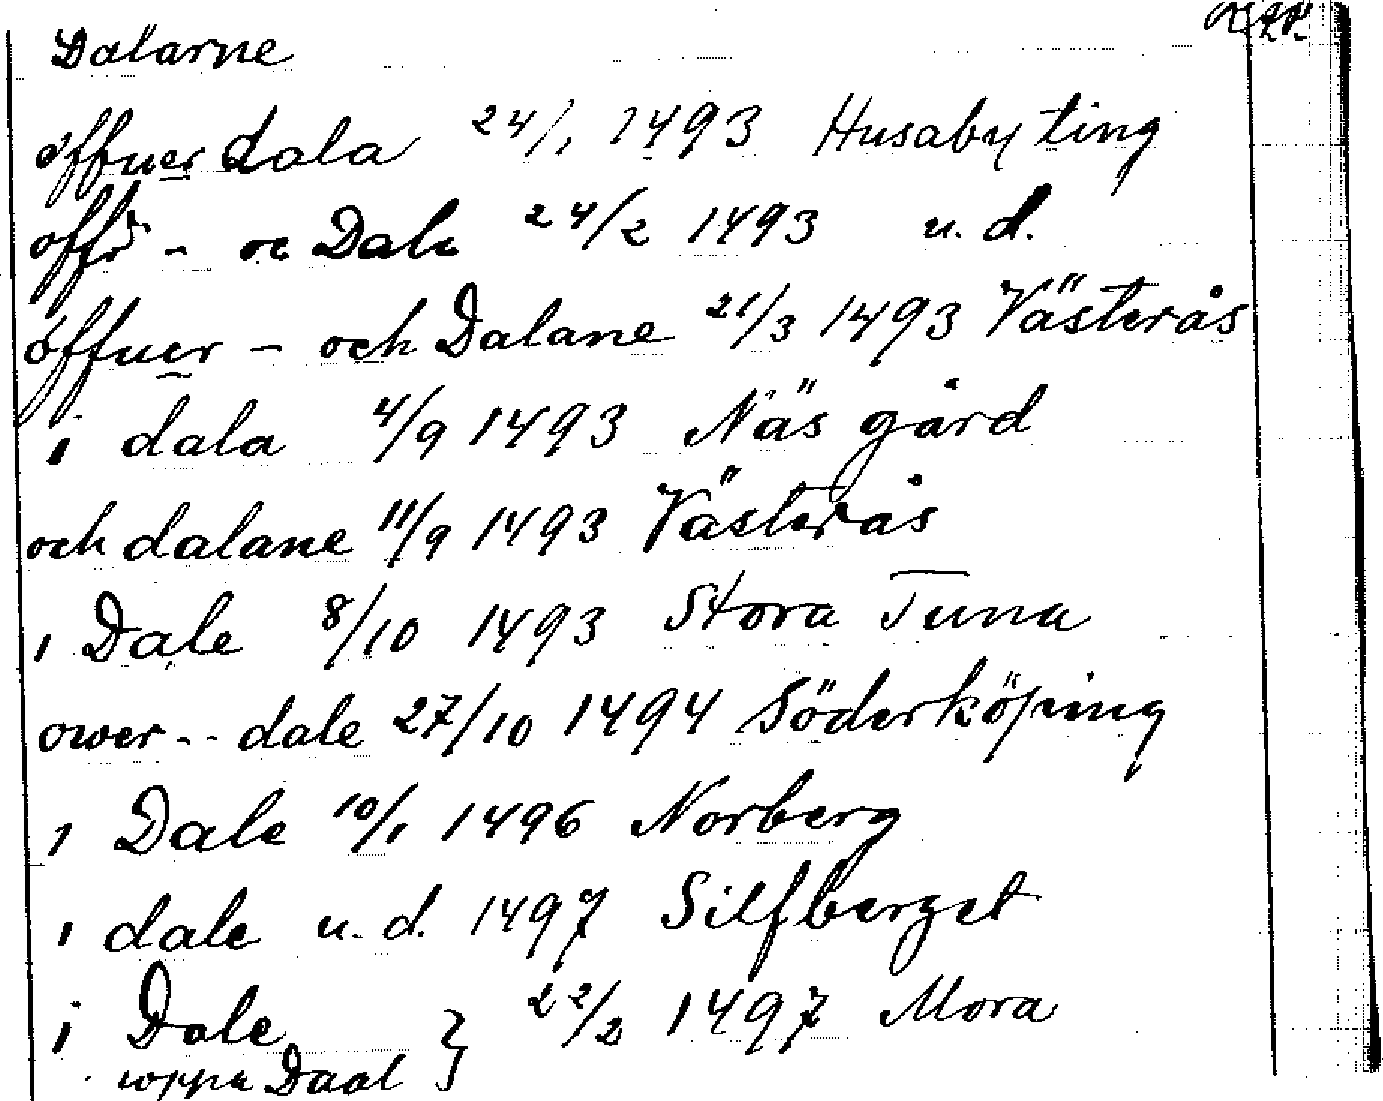 Dalarne
öffuer dala 24/1 1493 Husaby ting
offr - oc Dale 24/2 1493 u. d.
öffuer - och Dalane 21/3 1493 Västerås
i dala 4/9 1493 Näs gård
och dalane 11/9 1493 Västerås
i Dale 8/10 1493 Stora Tuna
ower -- dale 27/10 1494 Söderköping
i Dale 10/1 1496 Norberg
i dale u. d. 1497 Silfberget
i Dale } 22/2 1497 Mora
wppa Daal